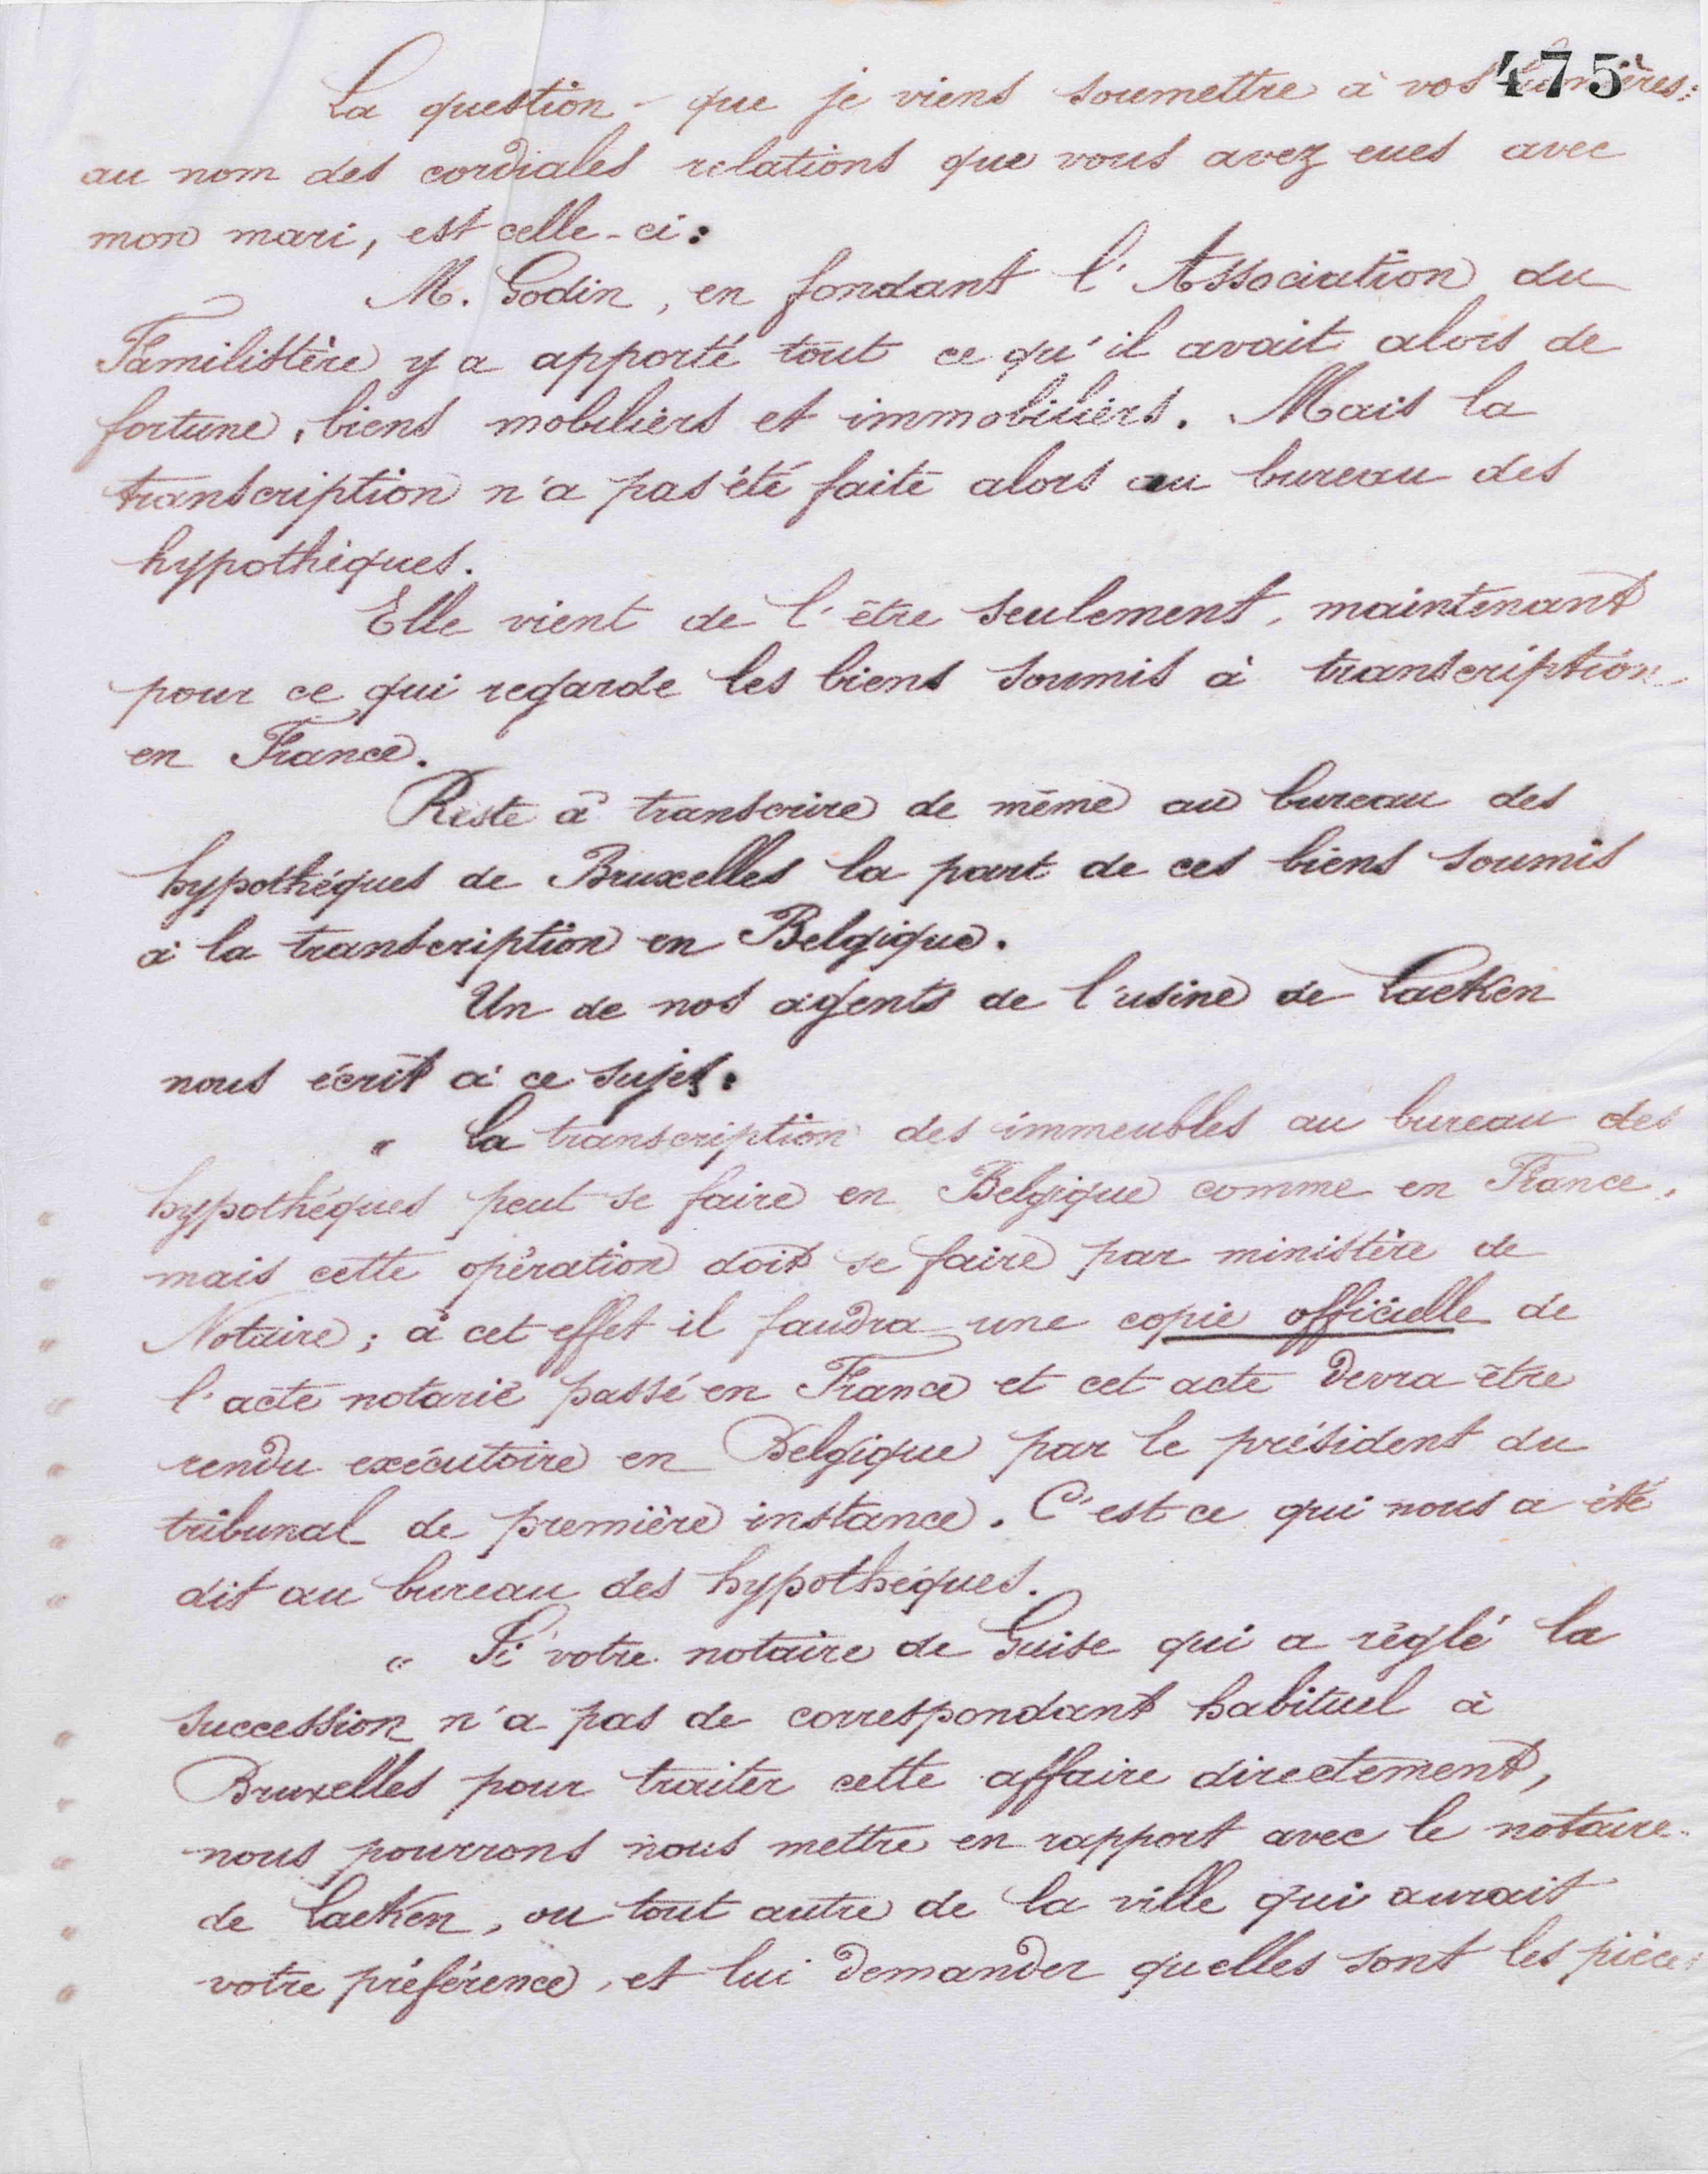 475
La question que je viens soumettre à vos lumières
au nom des cordiales relations que vous avez eues avec
mon mari, est celle-ci:
M. Godin, en fondant l'Association du
Familistère y a apporté tout ce qu'il avait alors de
fortune, biens mobiliers et immobiliers. Mais la
transcription n'a pas été faite alors au bureau des
hypothèques.
Elle vient de l'être seulement, maintenant
pour ce qui regarde les biens soumis à transcription
en France.
Reste à transcrire de même au bureau des
hypothéques de Bruxelles la part de ces biens soumis
à la transcription en Belgique.
Un de nos agents de l'usine de Laeken
nous écrit à ce sujet:
" La transcription des immeubles au bureau des
" hypothéques peut se faire en Belgique comme en France,
" mais cette opération doit se faire par ministère de
" Notaire; à cet effet il faudra une copie officielle de
" l'acte notarié passé en France et cet acte devra être
" rendu exécutoire en Belgique par le président du
" tribunal de première instance. C'est ce qui nous a été
" dit au bureau des hypothéques.
" Si votre notaire de Guise qui a réglé la
" succession n'a pas de correspondant habituel à
" Bruxelles pour traiter cette affaire directement,
" nous pourrons nous mettre en rapport avec le notaire
" de Laeken, ou tout autre de la ville qui aurait
" votre préférence, et lui demander quelles sont les pièces